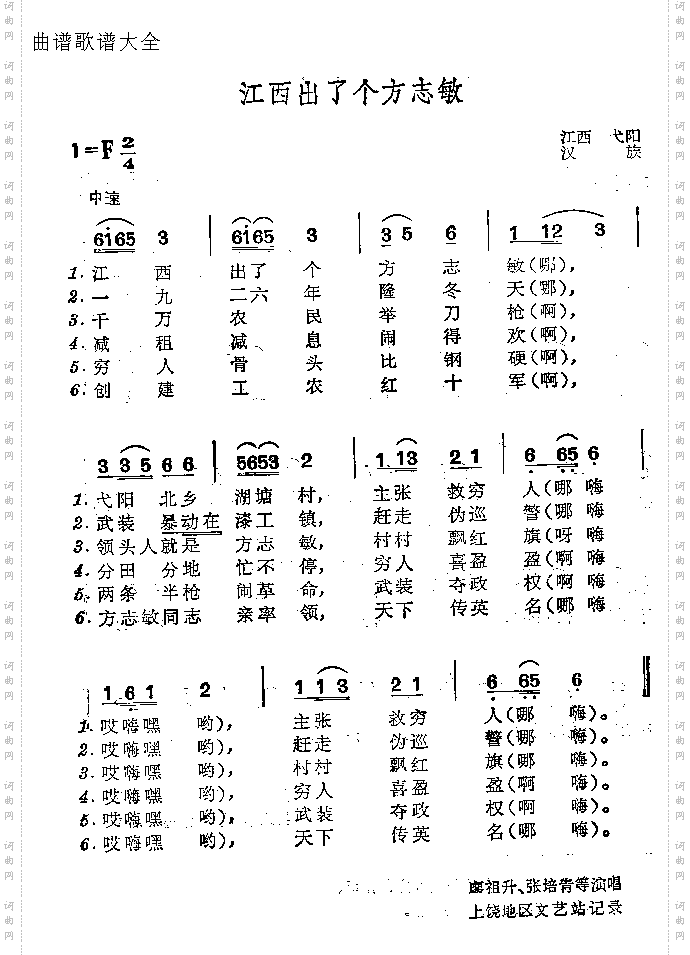 曲谱歌谱大全
江西出了个方志敏
1=F 2/4
江西 弋阳
汉 族
中速
6i65 3 | 6i65 3 | 3 5 6 | 1 12 3 |
1. 江 西 出了 个 方 志 敏(哪),
2. 一 九 二六 年 隆 冬 天(哪),
3. 千 万 农 民 举 刀 枪(啊),
4. 减 租 减 息 闹 得 欢(啊),
5. 穷 人 骨 头 比 钢 硬(啊),
6. 创 建 工 农 红 十 军(啊),
3 35 66 | 5653 2 | 1 13 21 | 6 65 6 |
1. 弋阳 北乡 湖塘 村, 主张 救穷 人(哪 嗨
2. 武装 暴动在 漆工 镇, 赶走 伪巡 警(哪 嗨
3. 领头人就是 方志 敏, 村村 飘红 旗(呀 嗨
4. 分田 分地 忙不 停, 穷人 喜盈 盈(啊 嗨
5. 两条 半枪 闹革 命, 武装 夺政 权(啊 嗨
6. 方志敏同志 亲率 领, 天下 传英 名(哪 嗨
1 61 2 | 1 13 21 | 6 65 6 ‖
1. 哎嗨嘿 哟), 主张 救穷 人(哪 嗨)。
2. 哎嗨嘿 哟), 赶走 伪巡 警(哪 嗨)。
3. 哎嗨嘿 哟), 村村 飘红 旗(哪 嗨)。
4. 哎嗨嘿 哟), 穷人 喜盈 盈(啊 嗨)。
5. 哎嗨嘿 哟), 武装 夺政 权(啊 嗨)。
6. 哎嗨嘿 哟), 天下 传英 名(哪 嗨)。
廖祖升、张培青等演唱
上饶地区文艺站记录